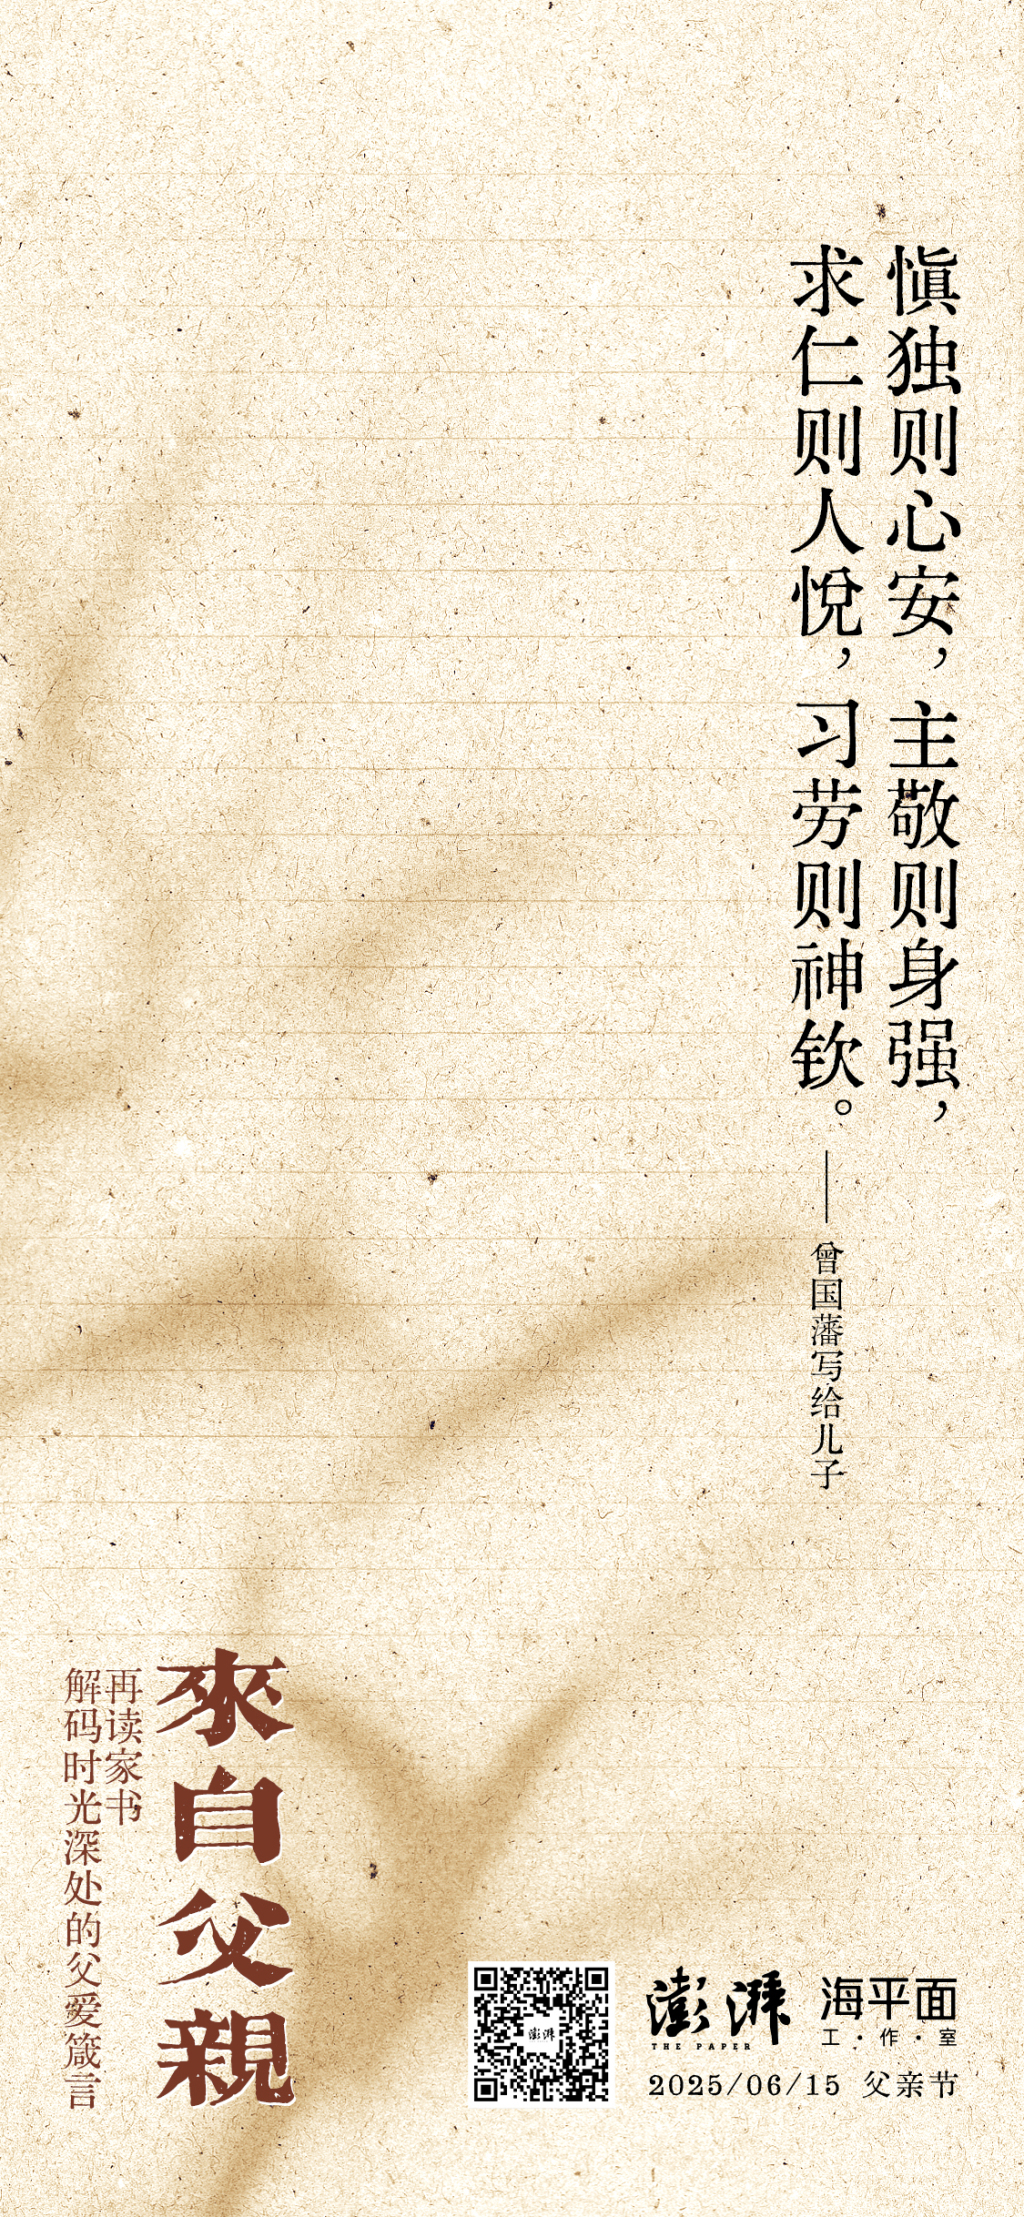 慎独则心安，主敬则身强，
求仁则人悦，习劳则神钦。
——曾国藩写给儿子
來自父親
再读家书
解码时光深处的父爱箴言
澎湃
澎湃
THE PAPER
海平面
工·作·室
2025/06/15 父亲节